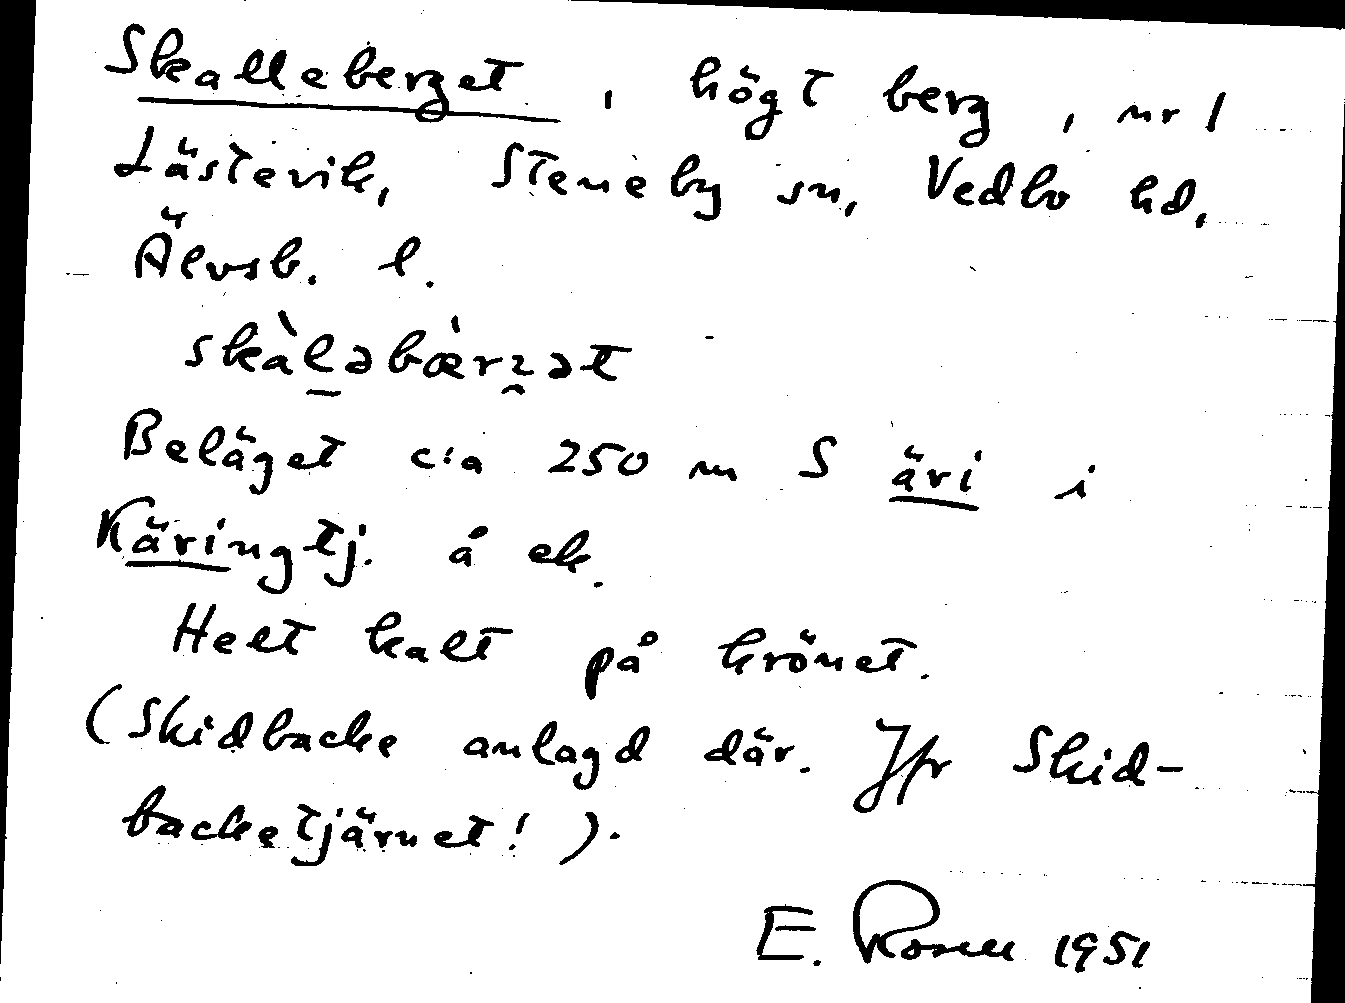 Skalleberget, högt berg, nr 1
Låstevik, Steneby sn, Vedbo hd,
Älvsb. l.
skàl̠əbæ̀rʒ̯ət
Beläget c:a 250 m S äri i
Käringtj. å ek.
Helt kalt på krönet.
(Skidbacke anlagd där. Jfr Skid-
backetjärnet!).
E. Rosell 1951